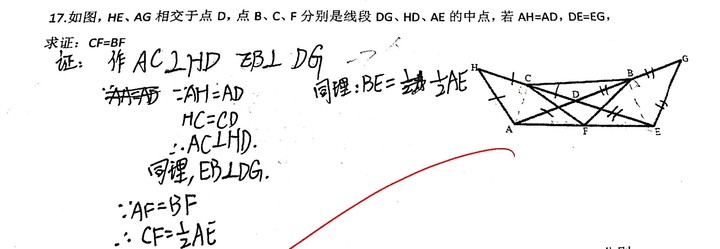 17.如图，HE、AG 相交于点 D，点 B、C、F 分别是线段 DG、HD、AE 的中点，若 AH=AD，DE=EG，
求证：CF=BF
证: 作AC⊥HD EB⊥DG
∵AH=AD
HC=CD
∴AC⊥HD.
同理,EB⊥DG.
∵AF=BF
∴CF=½AE
同理:BE=½AE
H C D B G A F E